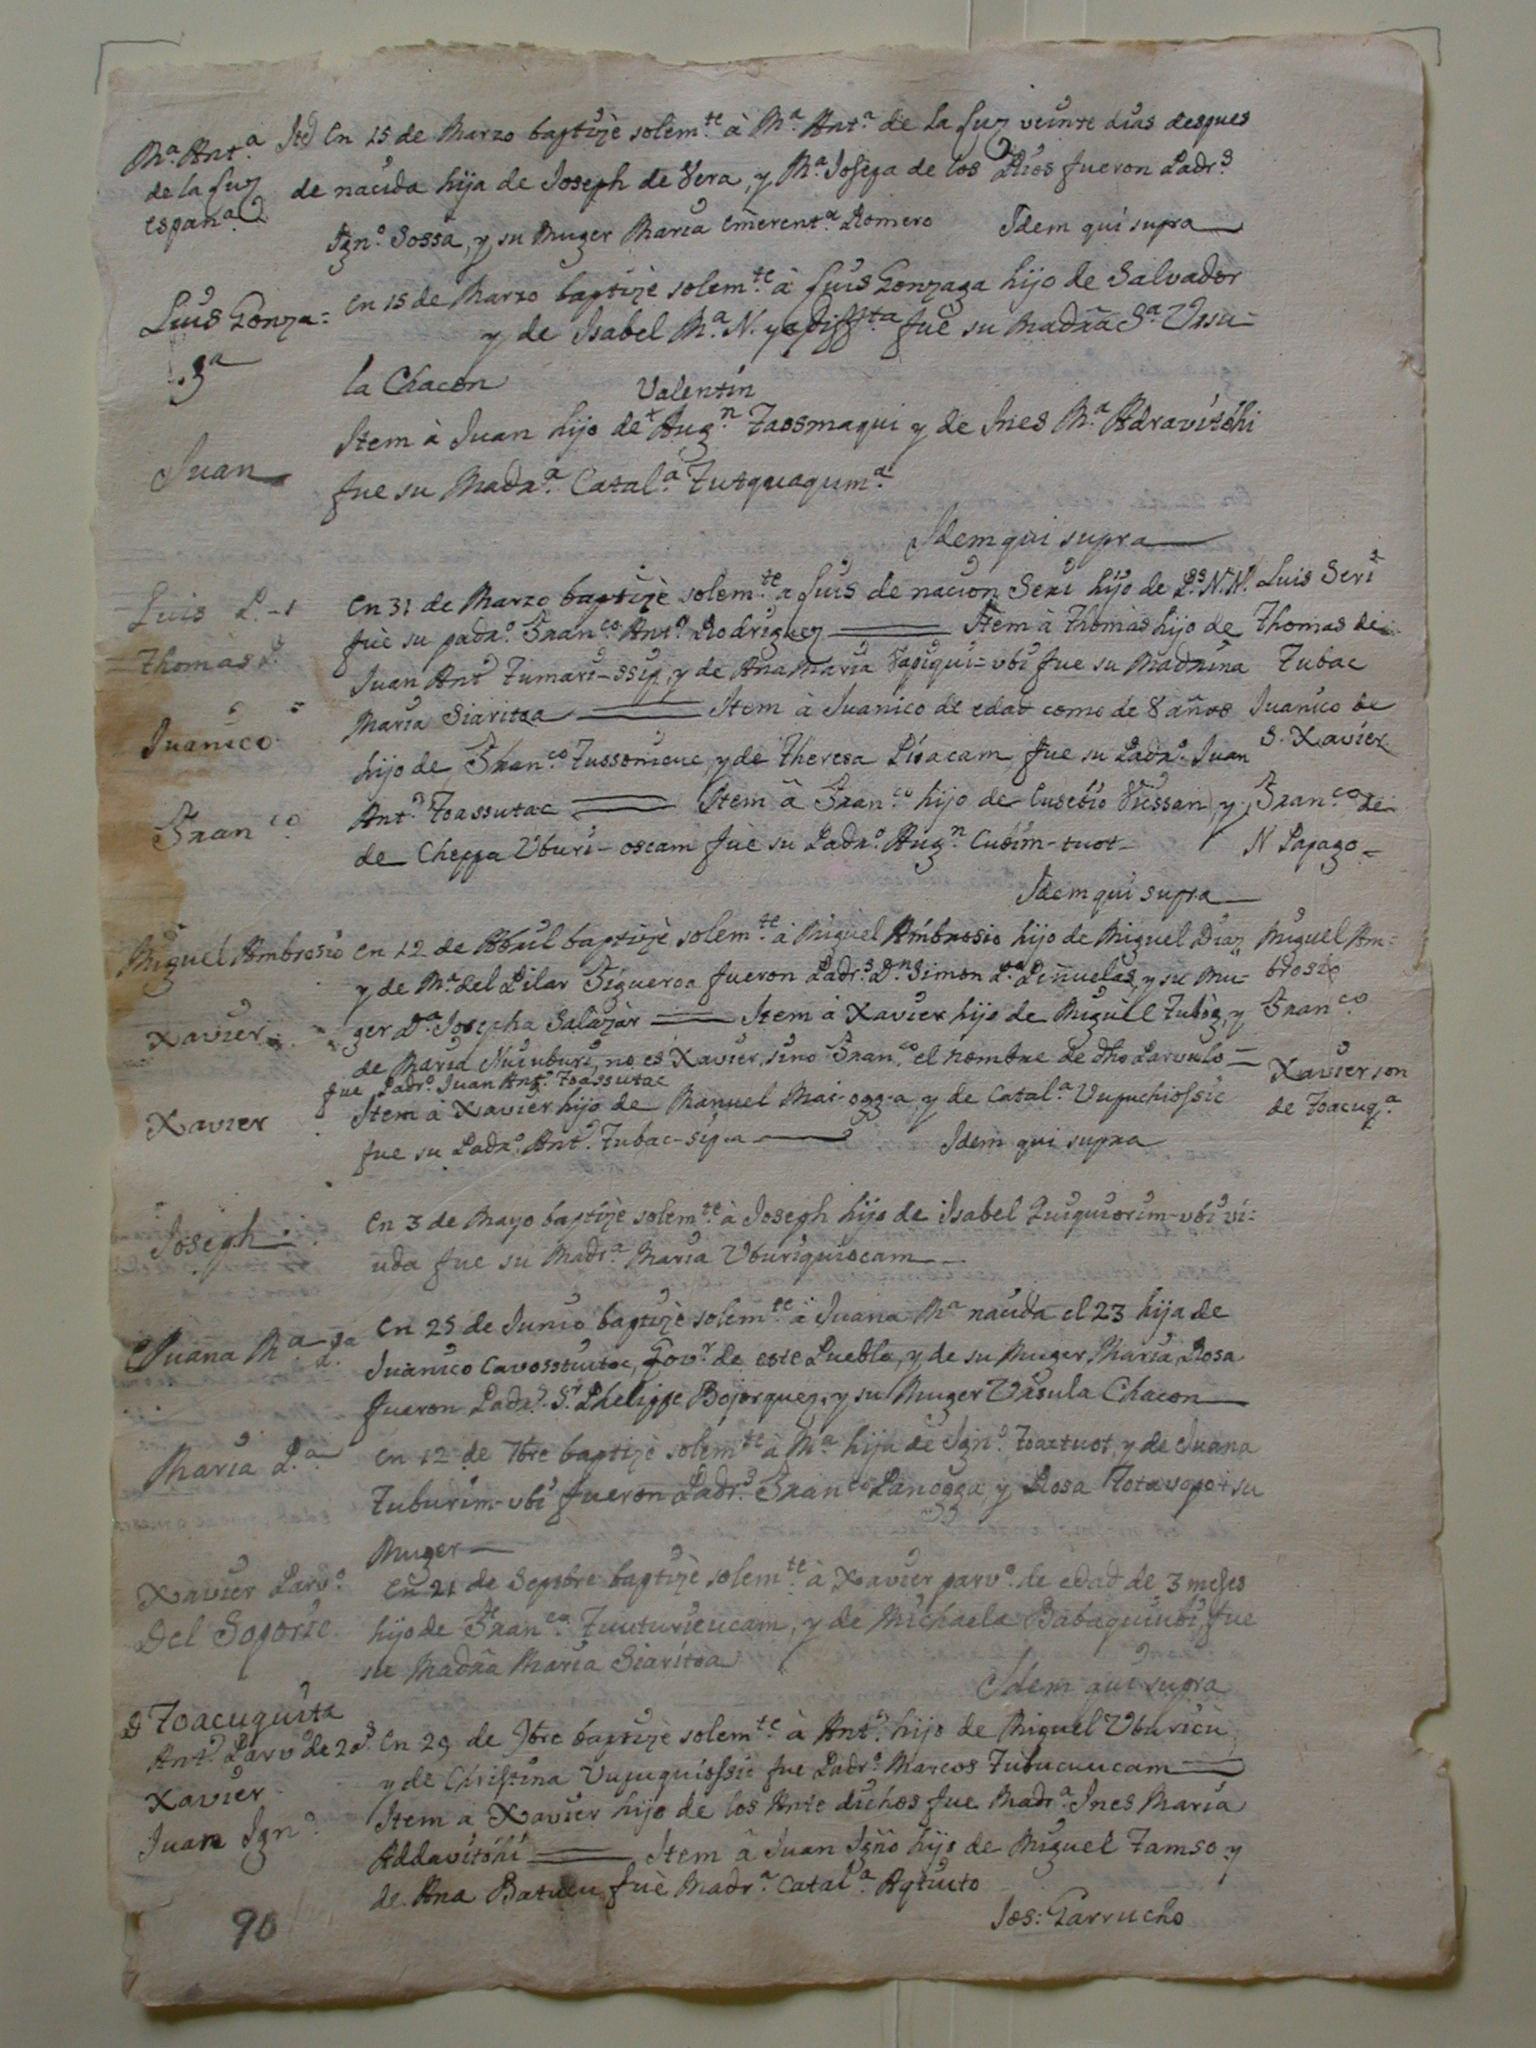 Mª Antª
de la Luz
españª
Itd En 15 de Marzo baptizè solemte à Mª Antª de la Luz veinte dias despues
de nacida hija de Joseph de Vera, y Mª Josepa de los Rios fueron Padrs
Ignº Sossa, y su Muger Maria Emerentª Romero Idem qui supra
Luis Gonza=
gª
En 15 de Marzo baptizè solemte à Luis Gonzaga hijo de Salvador
y de Isabel Mª N. fue su Madña Sª Ursu-
la Chacon
Valentin
Juan
Item à Juan hijo de + Augn Taosmaqui y de Ines Mª Adravitòhi
fue su Madrª Catalª Tutquagumª
Idem qui supra
Luis P.-s
En 31 de Marzo baptizè solemte a Luis de nacion Seri hijo de Ps N.N. Luis Seri
fuè su padrº Franco Antº Rodriguez Item à Thomàs hijo de Thomas de
Thomàs
Juan Antº Tumari-ssip, y de Ana Maria Vapiqui-ubi fue su Madrina Tubac
Juanico
Maria Siaritoa Item à Juanico de edad como de 8 años Juanico de
hijo de Franco Tussonicuc, y de Theresa Pisacam fue su Padrº Juan S. Xavier
Franco
Antº Toassutac Item â Franco hijo de Eusebio Vussan, y Franco de
de Cheppa Uburi-oscam fuè su Padrº Augn Cubim-tuot- N Papago-
Idem qui supra
Miguel Ambrosio En 12 de Abril baptizè solemte à Miguel Ambrosio hijo de Miguel Diaz Miguel Am=
y de Mª del Pilar Figueroa fueron Padrs Dn Simon Pº Piñuelas, y su Mu- brosio
Xavier
ger Dª Josepha Salazàr Item à Xavier hijo de Miguel Tubòg, y Franco
de Maria Nuiuburi, no es Xavier, sino Franco el nombre de dho Parvulo-
fue Padrº Juan Antº Toassutac
Xavier son
Xavier
Item à Xavier hijo de Manuel Mai-ogg-a, y de Catalª Vupuchiossic de Toacuqª
fue su Padrº Antº Tubac-sipia Idem qui supra
Joseph
En 3 de Mayo baptizè solemte à Joseph hijo de Isabel Quiquiorim-ubi vi=
uda fue su Madrª Maria Uburiquiocam
Juana Mª
En 25 de Junio baptizè solemte à Juana Mª nacida el 23 hija de
Juanico Cavosstuitoc, Govr de este Pueblo, y de su Muger Maria Rosa
fueron Padrs Sr Phelippe Bojorquez, y su Muger Ursula Chacon
Maria Pª
En 12 de 7bre baptizè solemte à Mª hija de Ignº Toaztuot, y de Juana
Tuburim-ubi fueron Padrs Franco Panogga, y Rosa Totavopot su
Muger
Xavier Parvº
Del Soporic
En 21 de Sepbre baptizè solemte à Xavier parvº de edad de 3 meses
hijo de Franco Tuuturicucam, y de Michaela Babaquiubi, fue
su Madña Maria Siaritoa
Idem qui supra
D Toacuquita
Antº Parvº de 2 as
En 29 de 9bre baptizè solemte à Antº hijo de Miguel Uburicu
y de Christina Vupuquiossic fue Padrº Marcos Tubucuucam
Xavier
Item a Xavier hijo de los Ante dichos fue Madrª Ines Maria
Juan Ignº
Addavitòhi Item â Juan Igño hijo de Miguel Tamso y
de Ana Batucu fuè Madrª Catalª Aqtuito
Jos: Garrucho
90